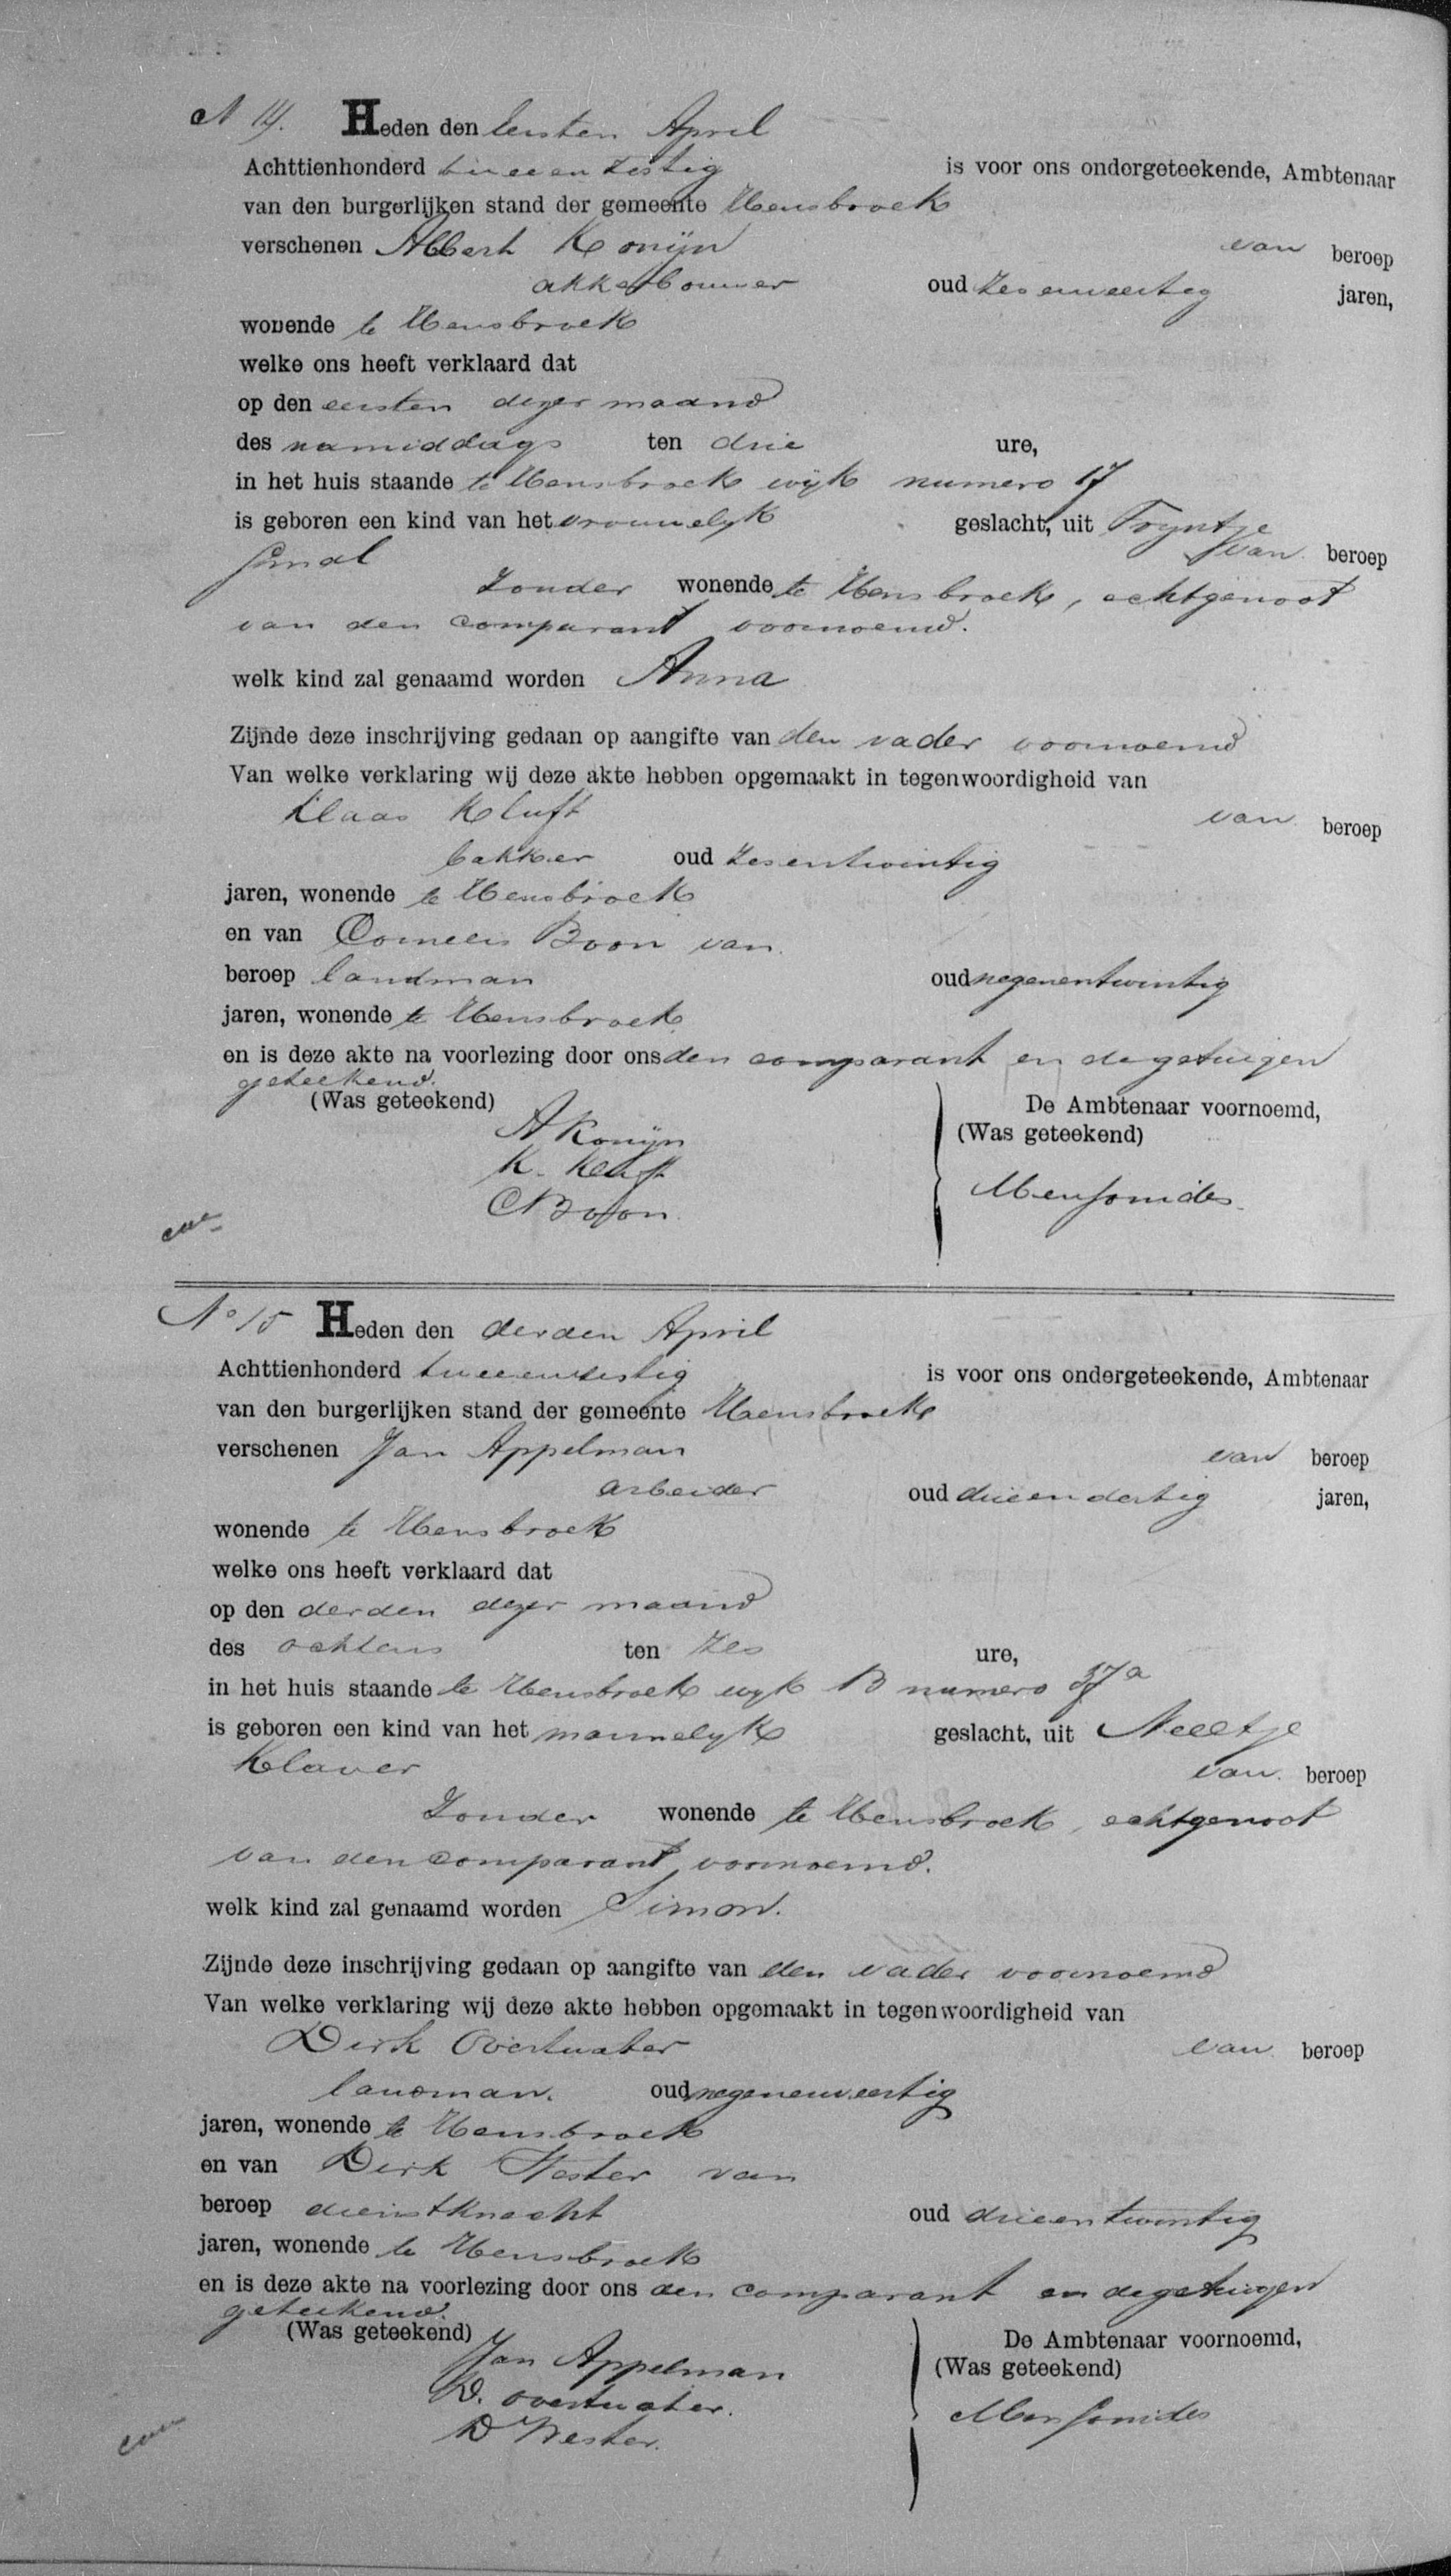 N 14. Heden den eersten April
Achttienhonderd twee en zestig is voor ons ondergeteekende, Ambtenaar
van den burgerlijken stand der gemeente Hensbroek
verschenen Albert Konijn van beroep
akkerbouwer oud zesenveertig jaren,
wonende te Hensbroek
welke ons heeft verklaard dat
op den eersten dezer maand
des namiddags ten drie ure,
in het huis staande te Hensbroek wijk numero 17
is geboren een kind van het vrouwelyk geslacht, uit Tryntje
Smal van beroep
Zonder wonende te Hensbroek, echtgenoot
van den comparant voornoemd.
welk kind zal genaamd worden Anna
Zijnde deze inschrijving gedaan op aangifte van den vader voornoemd
Van welke verklaring wij deze akte hebben opgemaakt in tegenwoordigheid van
Klaas Kluft van beroep
bakker oud zesentwintig
jaren, wonende te Hensbroek
en van Cornelis Boon van
beroep landman oud negenentwintig
jaren, wonende te Hensbroek
en is deze akte na voorlezing door ons den comparant en de getuigen
geteekend.
(Was geteekend) De Ambtenaar voornoemd,
A Konijn (Was geteekend)
K. Kluft
C Boon. Mensonides
No 15 Heden den derden April
Achttienhonderd tweeenzestig is voor ons ondergeteekende, Ambtenaar
van den burgerlijken stand der gemeente Hensbroek
verschenen Jan Appelman van beroep
arbeider oud drieendertig jaren,
wonende te Hensbroek
welke ons heeft verklaard dat
op den derden dezer maand
des ochtens ten zes ure,
in het huis staande te Hensbroek wyk B numero 37a
is geboren een kind van het mannelyk geslacht, uit Neeltje
Klaver van beroep
Zonder wonende te Hensbroek, echtgenoot
van den comparant voornoemd.
welk kind zal genaamd worden Simon.
Zijnde deze inschrijving gedaan op aangifte van den vader voornoemd
Van welke verklaring wij deze akte hebben opgemaakt in tegenwoordigheid van
Dirk Overtwater van beroep
landman. oud negenenveertig
jaren, wonende te Hensbroek
en van Dirk Wester van
beroep dienstknecht oud drieentwintig
jaren, wonende te Hensbroek
en is deze akte na voorlezing door ons den comparant en de getuigen
geteekend.
(Was geteekend) De Ambtenaar voornoemd,
Jan Appelman (Was geteekend)
D. Overtwater.
D Wester. Mensonides